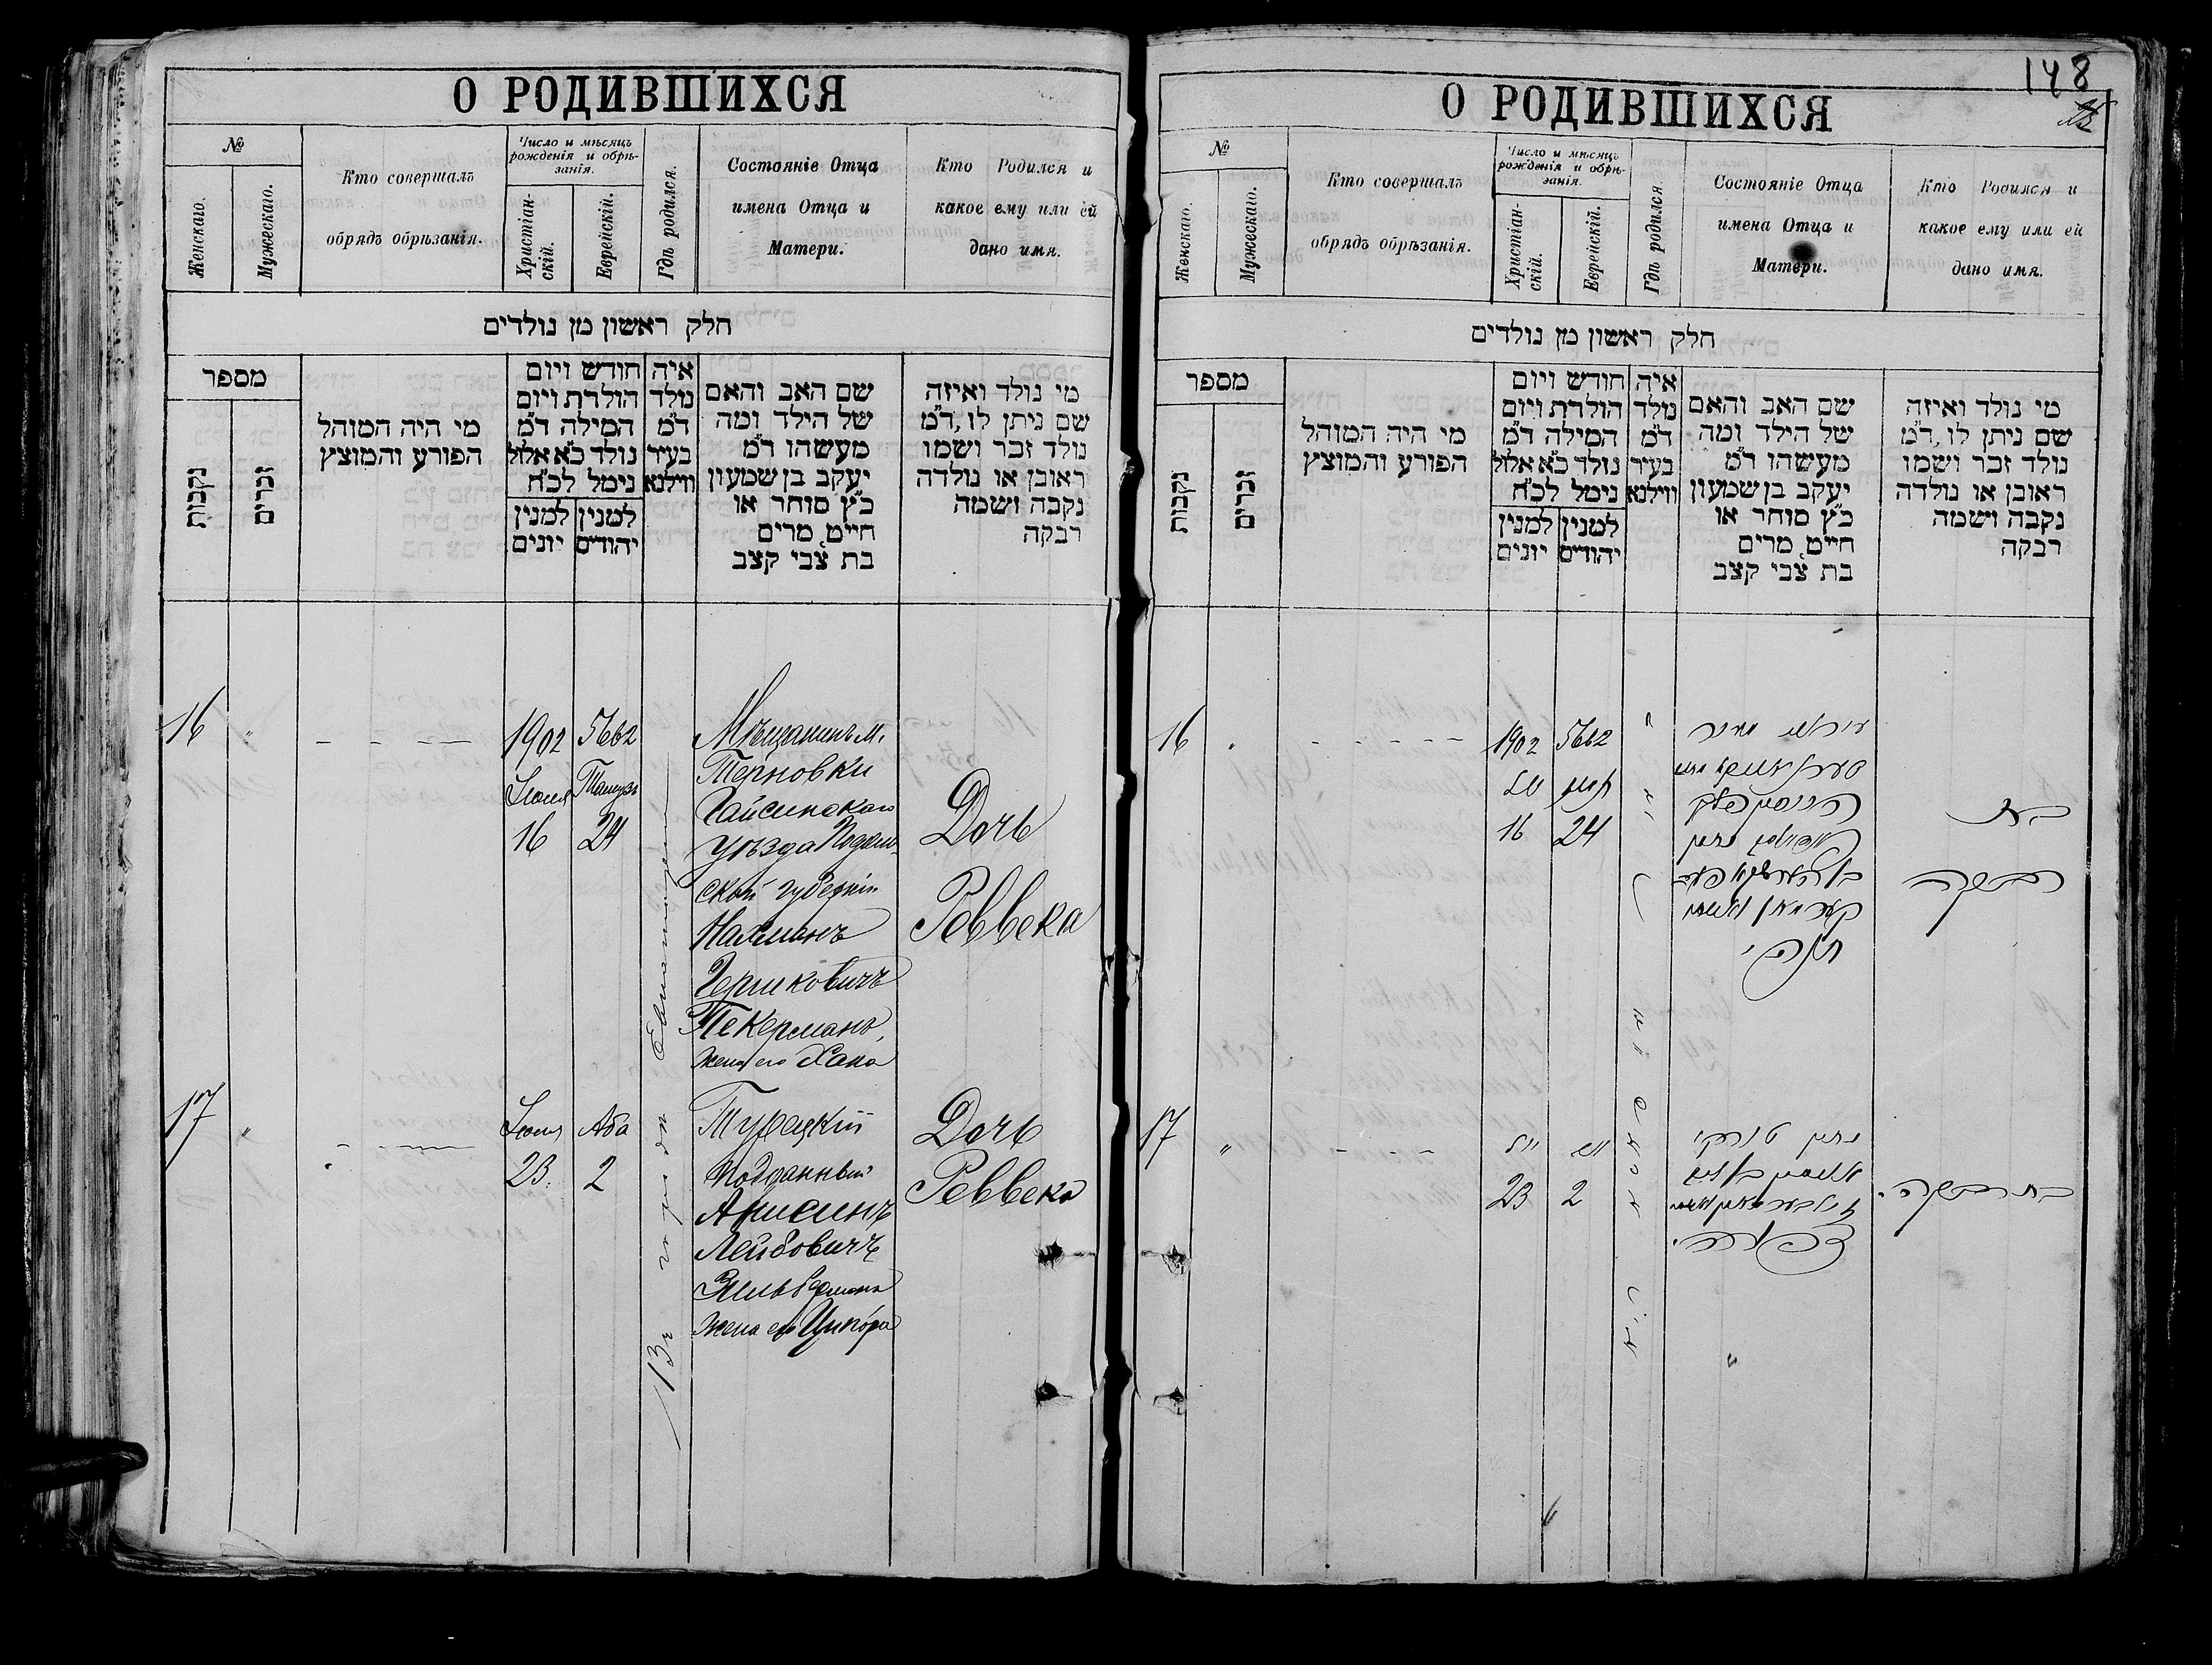 О РОДИВШИХСЯ
№
Женскаго.
Мужескаго.
Кто совершалъ
обрядъ обрѣзанія.
Число и мѣсяцъ
рожденія и обрѣ-
занія.
Христіан-
скій.
Еврейскій.
Гдѣ родился.
Состояніе Отца
имена Отца и
Матери.
Кто Родился и
какое ему или ей
дано имя.
חלק ראשון מן נולדים
מספר
נקבות
זכרים
מי היה המוהל
הפורע והמוצץ
חודש ויום
הולדת ויום
המילה ד״מ
נולד כ״א אלול
נימל לכ״ח
למנין
יונים
למנין
יהודים
איה
נולד
ד״מ
בעיר
ווילנא
שם האב והאם
של הילד ומה
מעשהו ד״מ
יעקב בן שמעון
כ״ץ סוחר או
חייט, מרים
בת צבי קצב
מי נולד ואיזה
שם ניתן לו, ד״מ
נולד זכר ושמו
ראובן או נולדה
נקבה ושמה
רבקה
16 „ - - - -
1902
Іюля
16
5662
Тамуз
24
Мѣщанинъ м.
Терновки
Гайсинскаго
уѣзда Подоль-
ской губерніи
Нахманъ
Гершковичъ
Текерманъ,
жена его Хана
Дочь
Реввека
17 „ - - - -
Іюля
23.
Аба
2
Турецкій
подданный
Лейбовичъ
Зильберманъ
жена его Ципора
Дочь
Реввека
Въ городѣ
148
О РОДИВШИХСЯ
№
Женскаго.
Мужескаго.
Кто совершалъ
обрядъ обрѣзанія.
Число и мѣсяцъ
рожденія и обрѣ-
занія.
Христіан-
скій.
Еврейскій.
Гдѣ родился.
Состояніе Отца
имена Отца и
Матери.
Кто Родился и
какое ему или ей
дано имя.
חלק ראשון מן נולדים
מספר
נקבות
זכרים
מי היה המוהל
הפורע והמוצץ
חודש ויום
הולדת ויום
המילה ד״מ
נולד כ״א אלול
נימל לכ״ח
למנין
יונים
למנין
יהודים
איה
נולד
ד״מ
בעיר
ווילנא
שם האב והאם
של הילד ומה
מעשהו ד״מ
יעקב בן שמעון
כ״ץ סוחר או
חייט, מרים
בת צבי קצב
מי נולד ואיזה
שם ניתן לו, ד״מ
נולד זכר ושמו
ראובן או נולדה
נקבה ושמה
רבקה
16 „ - - - -
1902
יולי
16
5662
תמוז
24
בת
רבקה
17 „ - - - -
יולי
23
אב
2
בת רבקה